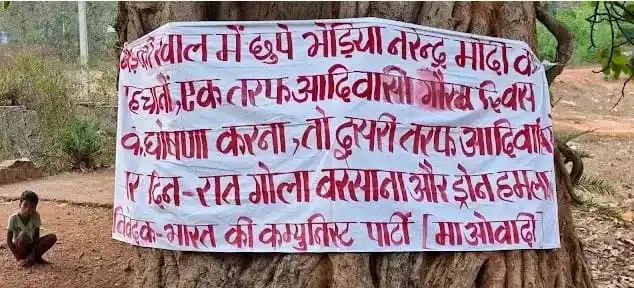 खाल में छुपे भेड़िया नरेन्द्र मोदी
एक तरफ आदिवासी गौरव दिवस
घोषणा करना, तो दुसरी तरफ
दिन-रात गोला बरसाना और ड्रोन हमला
निवेदक-भारत की कम्युनिस्ट पार्टी [माओवादी]